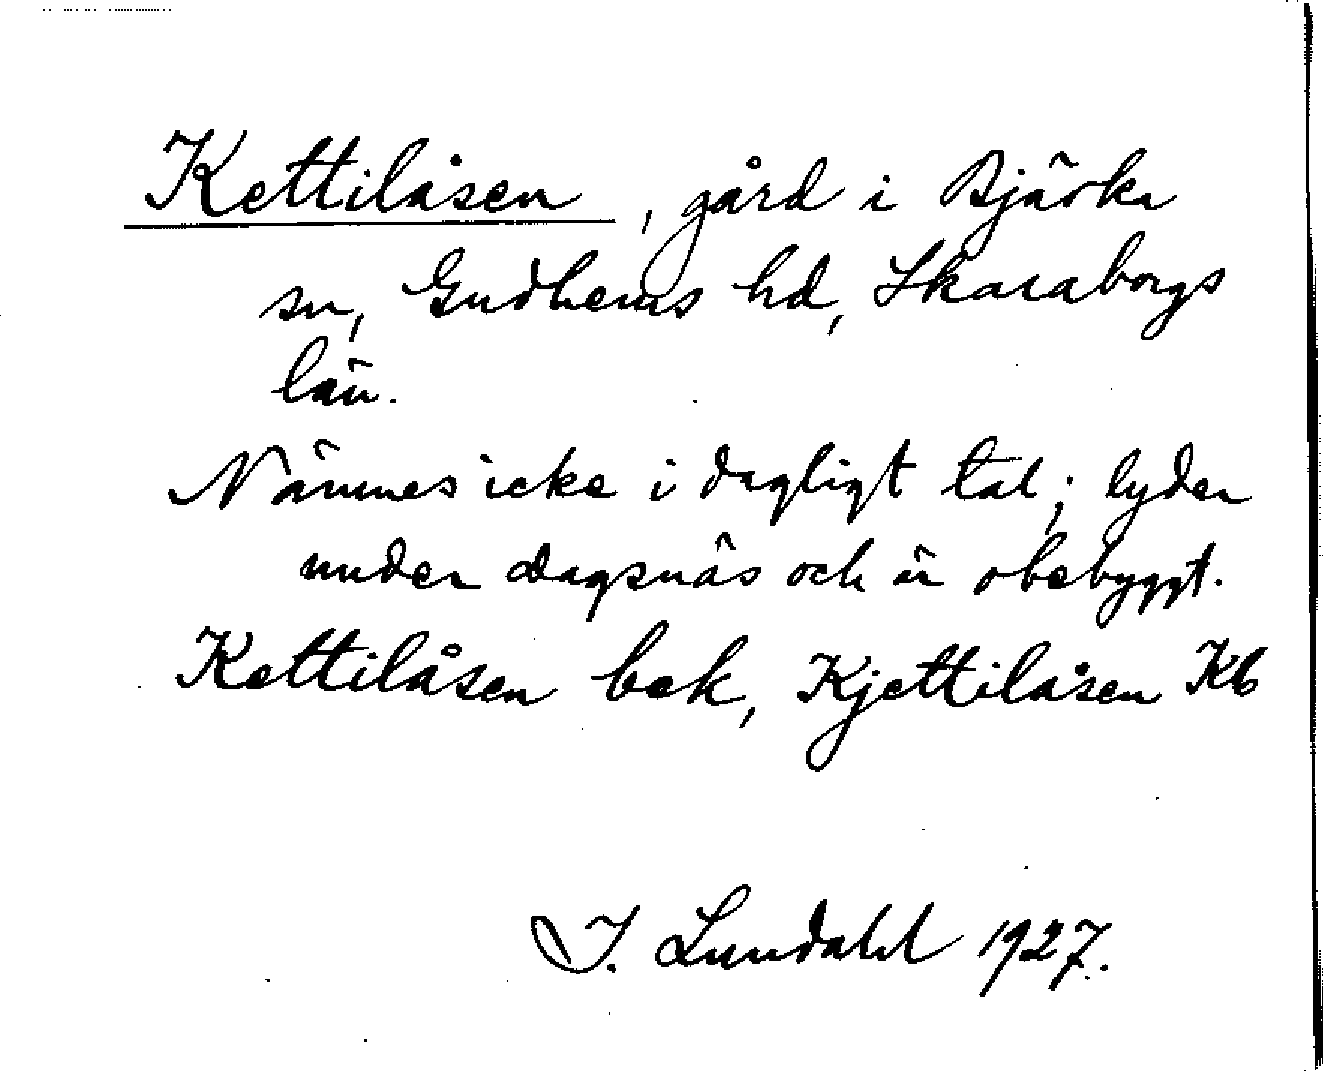 Kettilåsen, gård i Bjärka
sn, Gudhems hd, Skaraborgs
län.
Nämnes icke i dagligt tal; lyder
under Dagsnäs och är obebyggt.
Kettilåsen bek, Kjettilåsen Kb
I. Lundahl 1927.